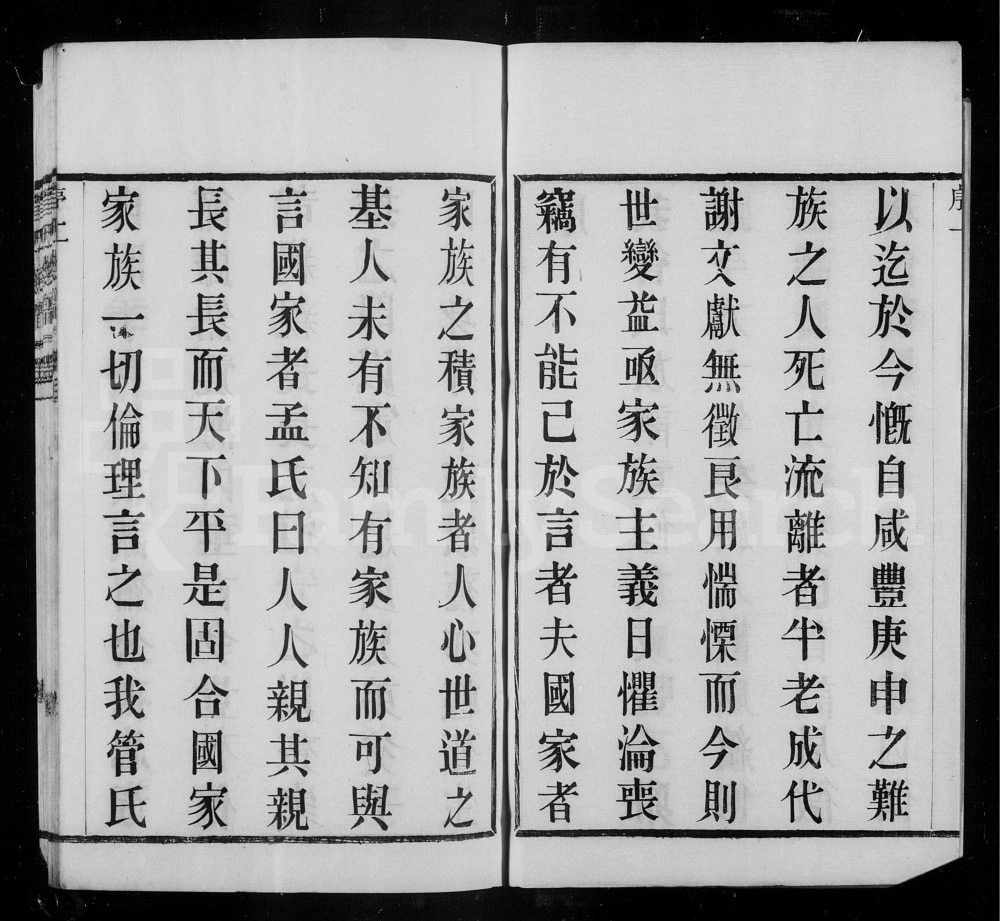 以迄於今慨自咸豐庚申之難
族之人死亡流離者半老成代
謝文獻無徵良用惴慄而今則
世變益亟家族主義日懼淪喪
竊有不能已於言者夫國家者
家族之積家族者人心世道之
基人未有不知有家族而可與
言國家者孟氏曰人人親其親
長其長而天下平是固合國家
家族一切倫理言之也我管氏
FamilySearch